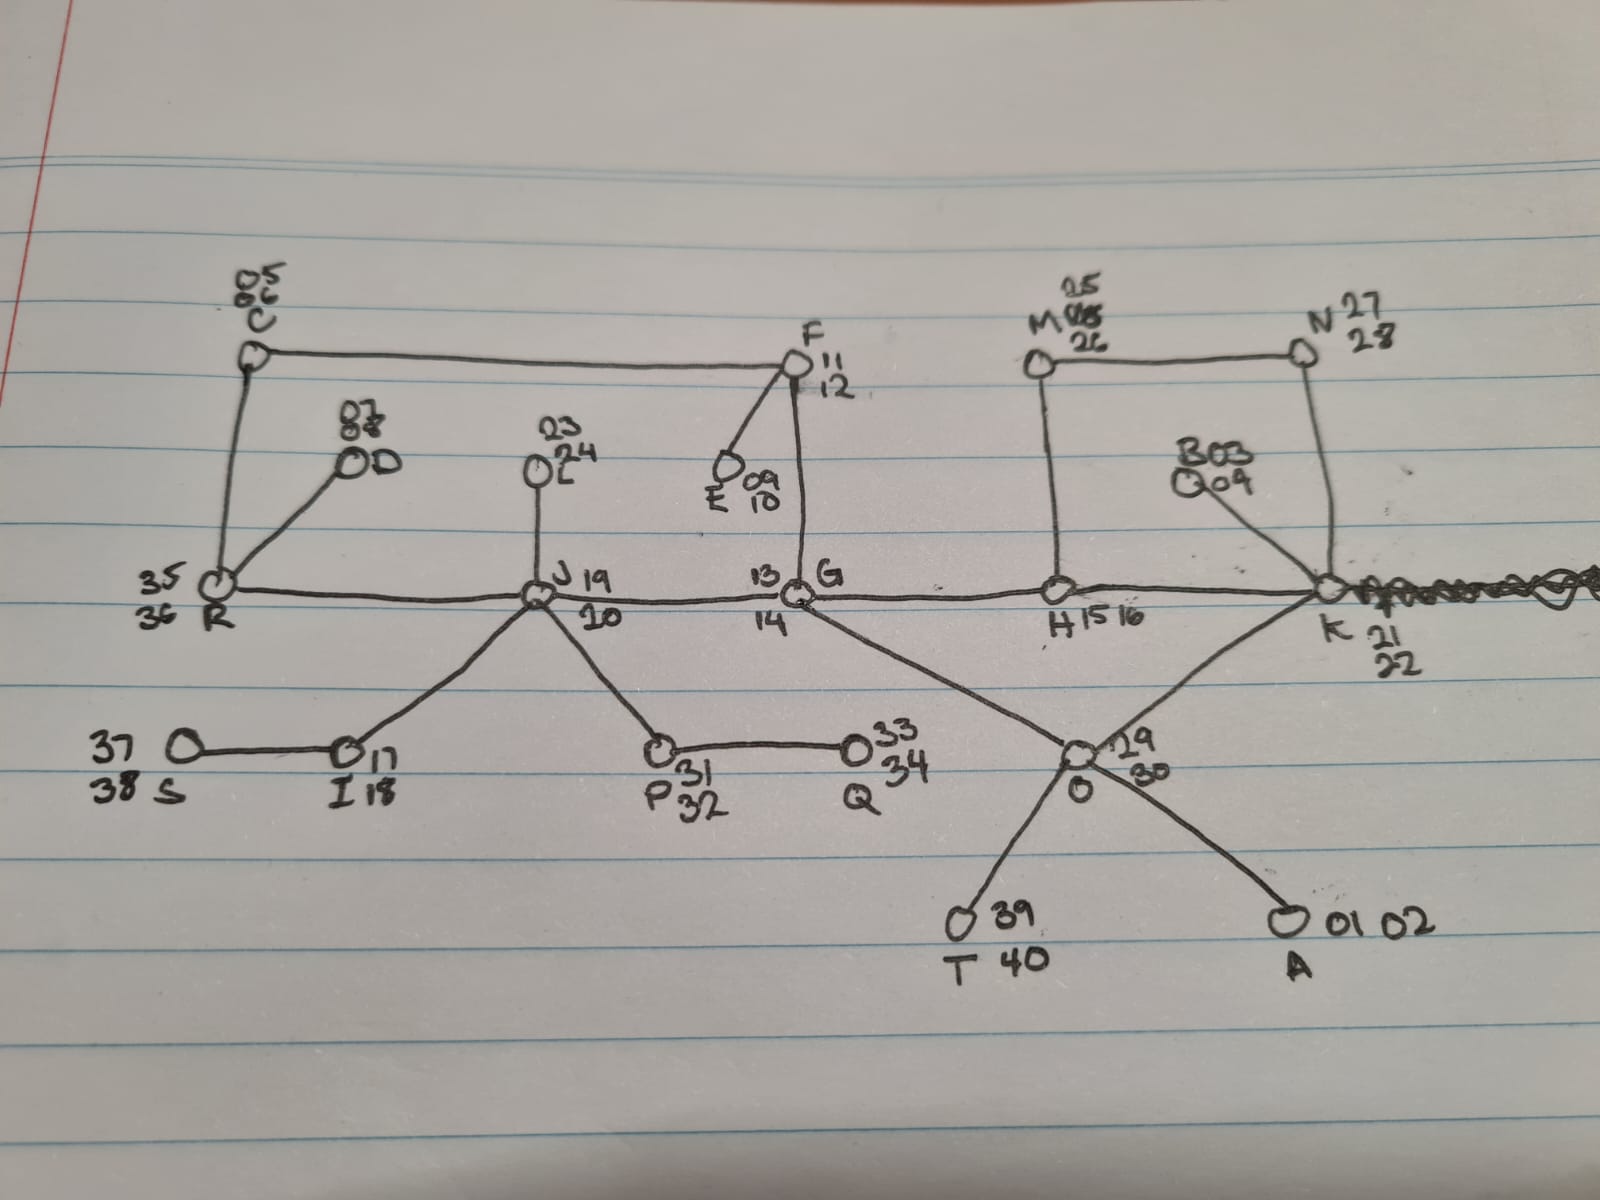 05
06
C
F
11
12
25
M
26
N 27
28
07
08
D
23
24
L
E 09
10
B 03
04
35
36 R
J 19
20
13 G
14
H 15 16
K 21
22
37
38 S
17
I 18
31
P 32
33
34
Q
29
30
O
39
T 40
01 02
A